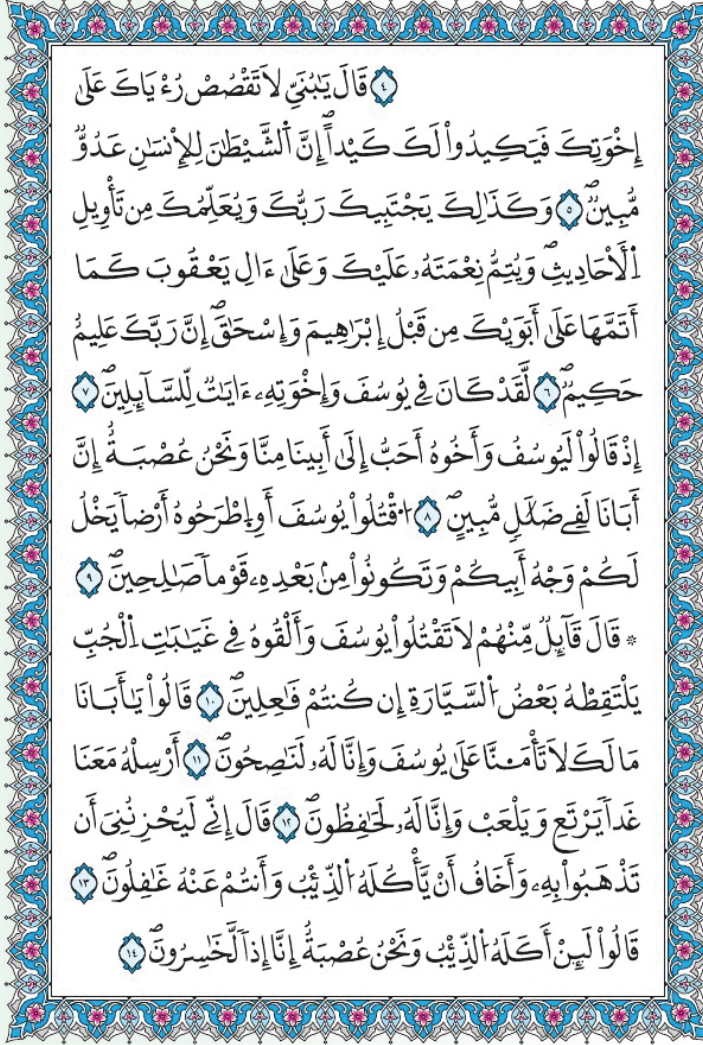 ﴿٤﴾ قَالَ يَٰبُنَيِّ لَا تَقْصُصْ رُءْيَاكَ عَلَىٰ
إِخْوَتِكَ فَيَكِيدُوا۟ لَكَ كَيْداًۖ إِنَّ اَ۬لشَّيْطَٰنَ لِلْإِنسَٰنِ عَدُوٌّ
مُّبِينٌۖ ﴿٥﴾ وَكَذَٰلِكَ يَجْتَبِيكَ رَبُّكَ وَيُعَلِّمُكَ مِن تَأْوِيلِ
اِ۬لْأَحَادِيثِۖ وَيُتِمُّ نِعْمَتَهُۥ عَلَيْكَ وَعَلَىٰ ءَالِ يَعْقُوبَ كَمَا
أَتَمَّهَا عَلَىٰ أَبَوَيْكَ مِن قَبْلُ إِبْرَٰهِيمَ وَإِسْحَٰقَۖ إِنَّ رَبَّكَ عَلِيمٌ
حَكِيمٌۖ ﴿٦﴾ لَّقَدْ كَانَ فِي يُوسُفَ وَإِخْوَتِهِۦ ءَايَٰتٌ لِّلسَّآئِلِينَۖ ﴿٧﴾
إِذْ قَالُوا۟ لَيُوسُفُ وَأَخُوهُ أَحَبُّ إِلَىٰ أَبِينَا مِنَّا وَنَحْنُ عُصْبَةٌۖ إِنَّ
أَبَانَا لَفِي ضَلَٰلٍ مُّبِينٍۖ ﴿٨﴾ اُ۟قْتُلُوا۟ يُوسُفَ أَوِ اِ۪طْرَحُوهُ أَرْضاً يَخْلُ
لَكُمْ وَجْهُ أَبِيكُمْ وَتَكُونُوا۟ مِنۢ بَعْدِهِۦ قَوْماً صَٰلِحِينَۖ ﴿٩﴾
* قَالَ قَآئِلٌ مِّنْهُمْ لَا تَقْتُلُوا۟ يُوسُفَ وَأَلْقُوهُ فِي غَيَٰبَٰتِ اِ۬لْجُبِّ
يَلْتَقِطْهُ بَعْضُ اُ۬لسَّيَّارَةِ إِن كُنتُمْ فَٰعِلِينَۖ ﴿١٠﴾ قَالُوا۟ يَٰأَبَانَا
مَا لَكَ لَا تَأْمَ۬نَّا عَلَىٰ يُوسُفَ وَإِنَّا لَهُۥ لَنَٰصِحُونَۖ ﴿١١﴾ أَرْسِلْهُ مَعَنَا
غَداً يَرْتَعِ وَيَلْعَبْ وَإِنَّا لَهُۥ لَحَٰفِظُونَۖ ﴿١٢﴾ قَالَ إِنِّي لَيُحْزِنُنِي أَن
تَذْهَبُوا۟ بِهِۦ وَأَخَافُ أَنْ يَّأْكُلَهُ اُ۬لذِّئْبُ وَأَنتُمْ عَنْهُ غَٰفِلُونَۖ ﴿١٣﴾
قَالُوا۟ لَئِنْ أَكَلَهُ اُ۬لذِّئْبُ وَنَحْنُ عُصْبَةٌۖ إِنَّا إِذاً لَّخَٰسِرُونَۖ ﴿١٤﴾